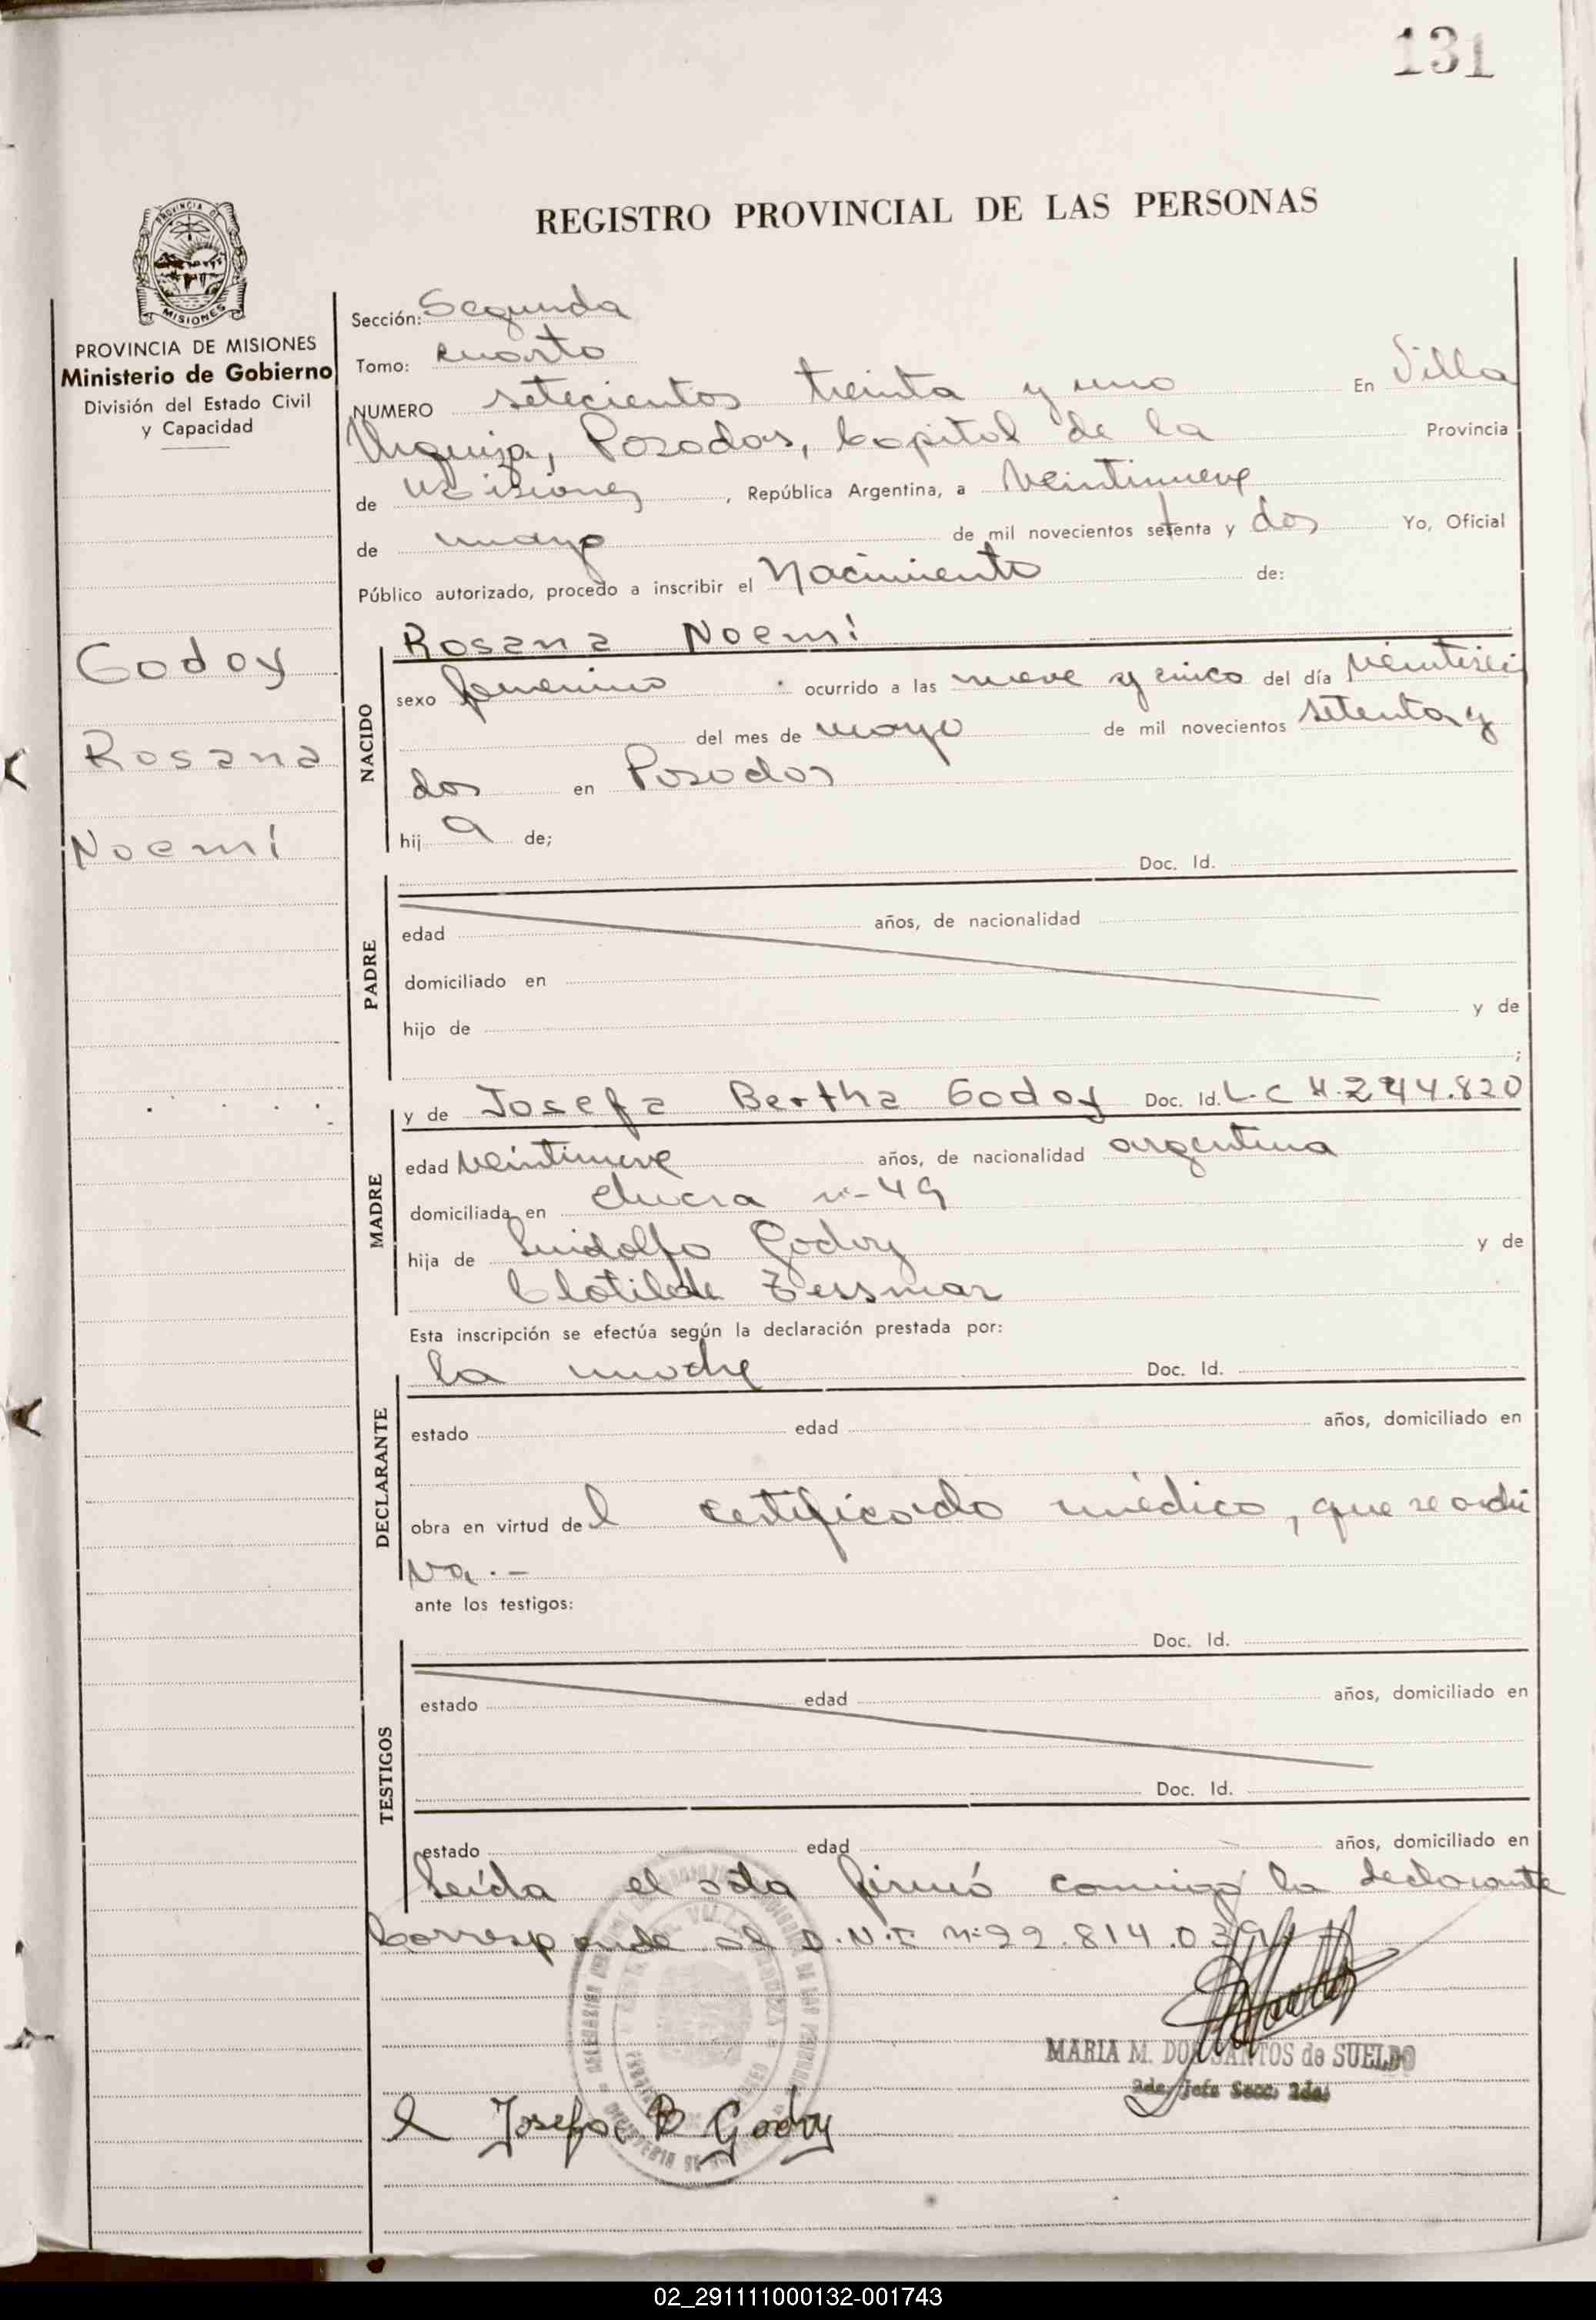 131
REGISTRO PROVINCIAL DE LAS PERSONAS
PROVINCIA DE MISIONES
Ministerio de Gobierno
División del Estado Civil
y Capacidad
Godoy
Rosana
Noemí
Sección: Segunda
Tomo: cuarto
NUMERO setecientos treinta y uno En Villa
Urquiza, Posadas, Capital de la Provincia
de Misiones, República Argentina, a Veintinueve
de mayo de mil novecientos setenta y dos Yo, Oficial
Público autorizado, procedo a inscribir el Nacimiento de:
NACIDO
Rosana Noemí
sexo femenino ocurrido a las nueve y cinco del día
del mes de mayo de mil novecientos setenta y
dos en Posadas
hij a de;
PADRE
Doc. Id.
edad años, de nacionalidad
domiciliado en
hijo de y de
;
MADRE
y de Josefa Bertha Godoy Doc. Id. L.C 4.244.820
edad veintinueve años, de nacionalidad argentina
domiciliada en chacra nº 49
hija de Luidolfo Godoy y de
Clotilde Zessmar
Esta inscripción se efectúa según la declaración prestada por:
DECLARANTE
la madre Doc. Id.
estado edad años, domiciliado en
obra en virtud de l certificado médico, que se archi
va.-
ante los testigos:
TESTIGOS
Doc. Id.
estado edad años, domiciliado en
Doc. Id.
estado edad años, domiciliado en
Leída el acta firmó conmigo la declarante
Corresponde al D.N.I nº 22.814.039
MARIA M. DOS SANTOS de SUELDO
2da. Jefa Secc. 2da.
Josefa B Godoy
02_291111000132-001743